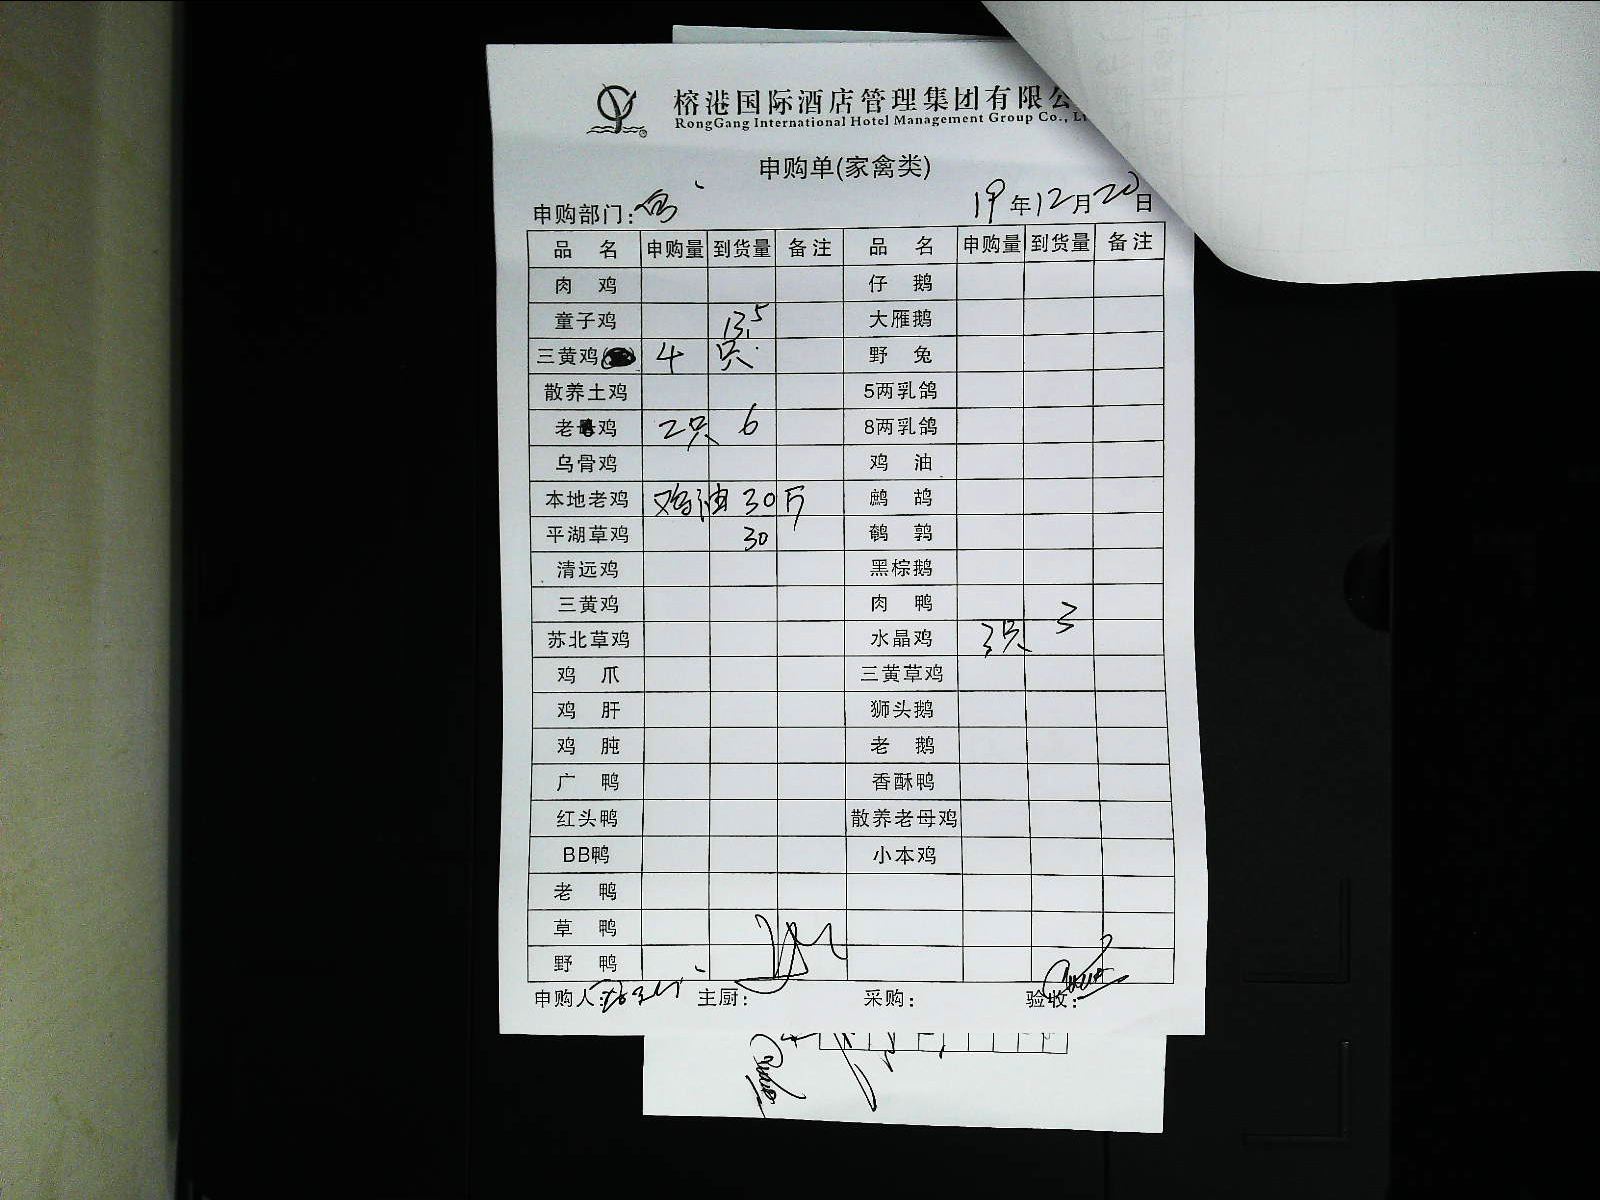 榕港国际酒店管理集团有限公
RongGang International Hotel Management Group Co., Lt
申购单(家禽类)
申购部门: 19年12月20日
品名 申购量 到货量 备注 品名 申购量 到货量 备注
肉鸡 仔鹅
童子鸡 13.5 大雁鹅
三黄鸡 4 只 野兔
散养土鸡 5两乳鸽
老鸡 2只 6 8两乳鸽
乌骨鸡 鸡油
本地老鸡 鸡油 30斤 鹧鸪
平湖草鸡 30 鹌鹑
清远鸡 黑棕鹅
三黄鸡 肉鸭 3
苏北草鸡 水晶鸡 3只
鸡爪 三黄草鸡
鸡肝 狮头鹅
鸡肫 老鹅
广鸭 香酥鸭
红头鸭 散养老母鸡
BB鸭 小本鸡
老鸭
草鸭
野鸭
申购人: 主厨: 采购: 验收: